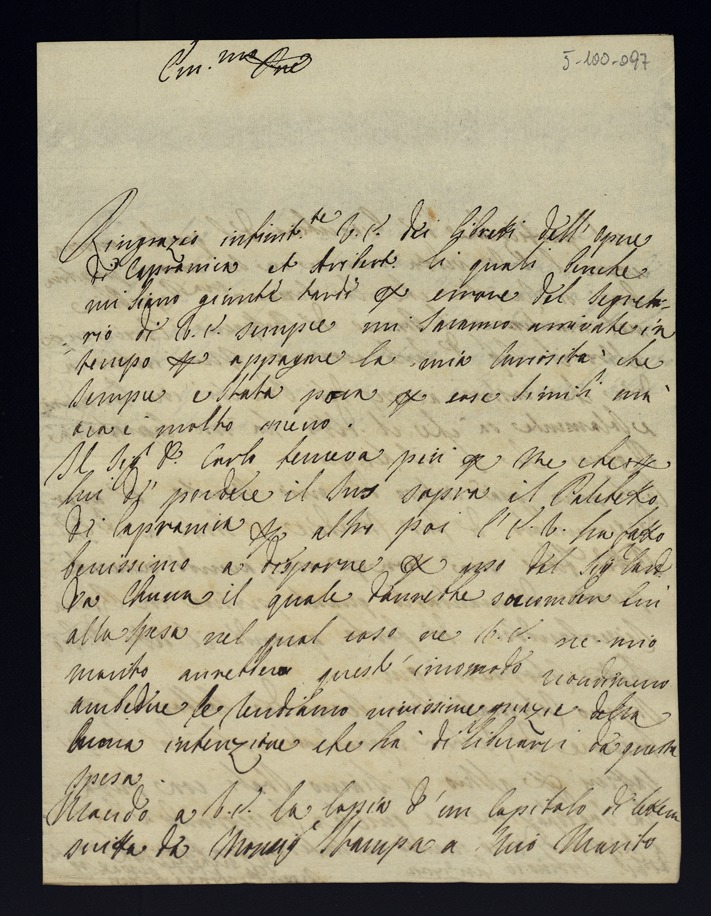 Em.mo
5-100-097
Ringrazio infinit.te V.E. dei libreti dell'opere
di Capranica et Aribert. li quali benche
mi siano giunte tardi errore del Segreta-
rio di V.E. sempre mi saranno arrivate in
tempo appagare la mia curiosità che
sempre e stata poca cose simili mà
ora è molto meno.
Il Sig.r D. Carlo temeva più me che
lui di perdere il Ius sopra il Palchetto
di Capranica altro poi l'E.V. ha fatto
benissimo a disporne uso del Sig
da il quale dourebbe lui
alla spesa nel qual caso ne V.E. ne mio
marito aurebbero quest'incomodo nondimeno
ambedue le rendiamo vivissime grazie della
buona intenzione che ha di librarci da questa
spesa.
Mando a V.E. la copia d'un Capitolo di letera
scritta da Monsig.r Stampa a mio Marito